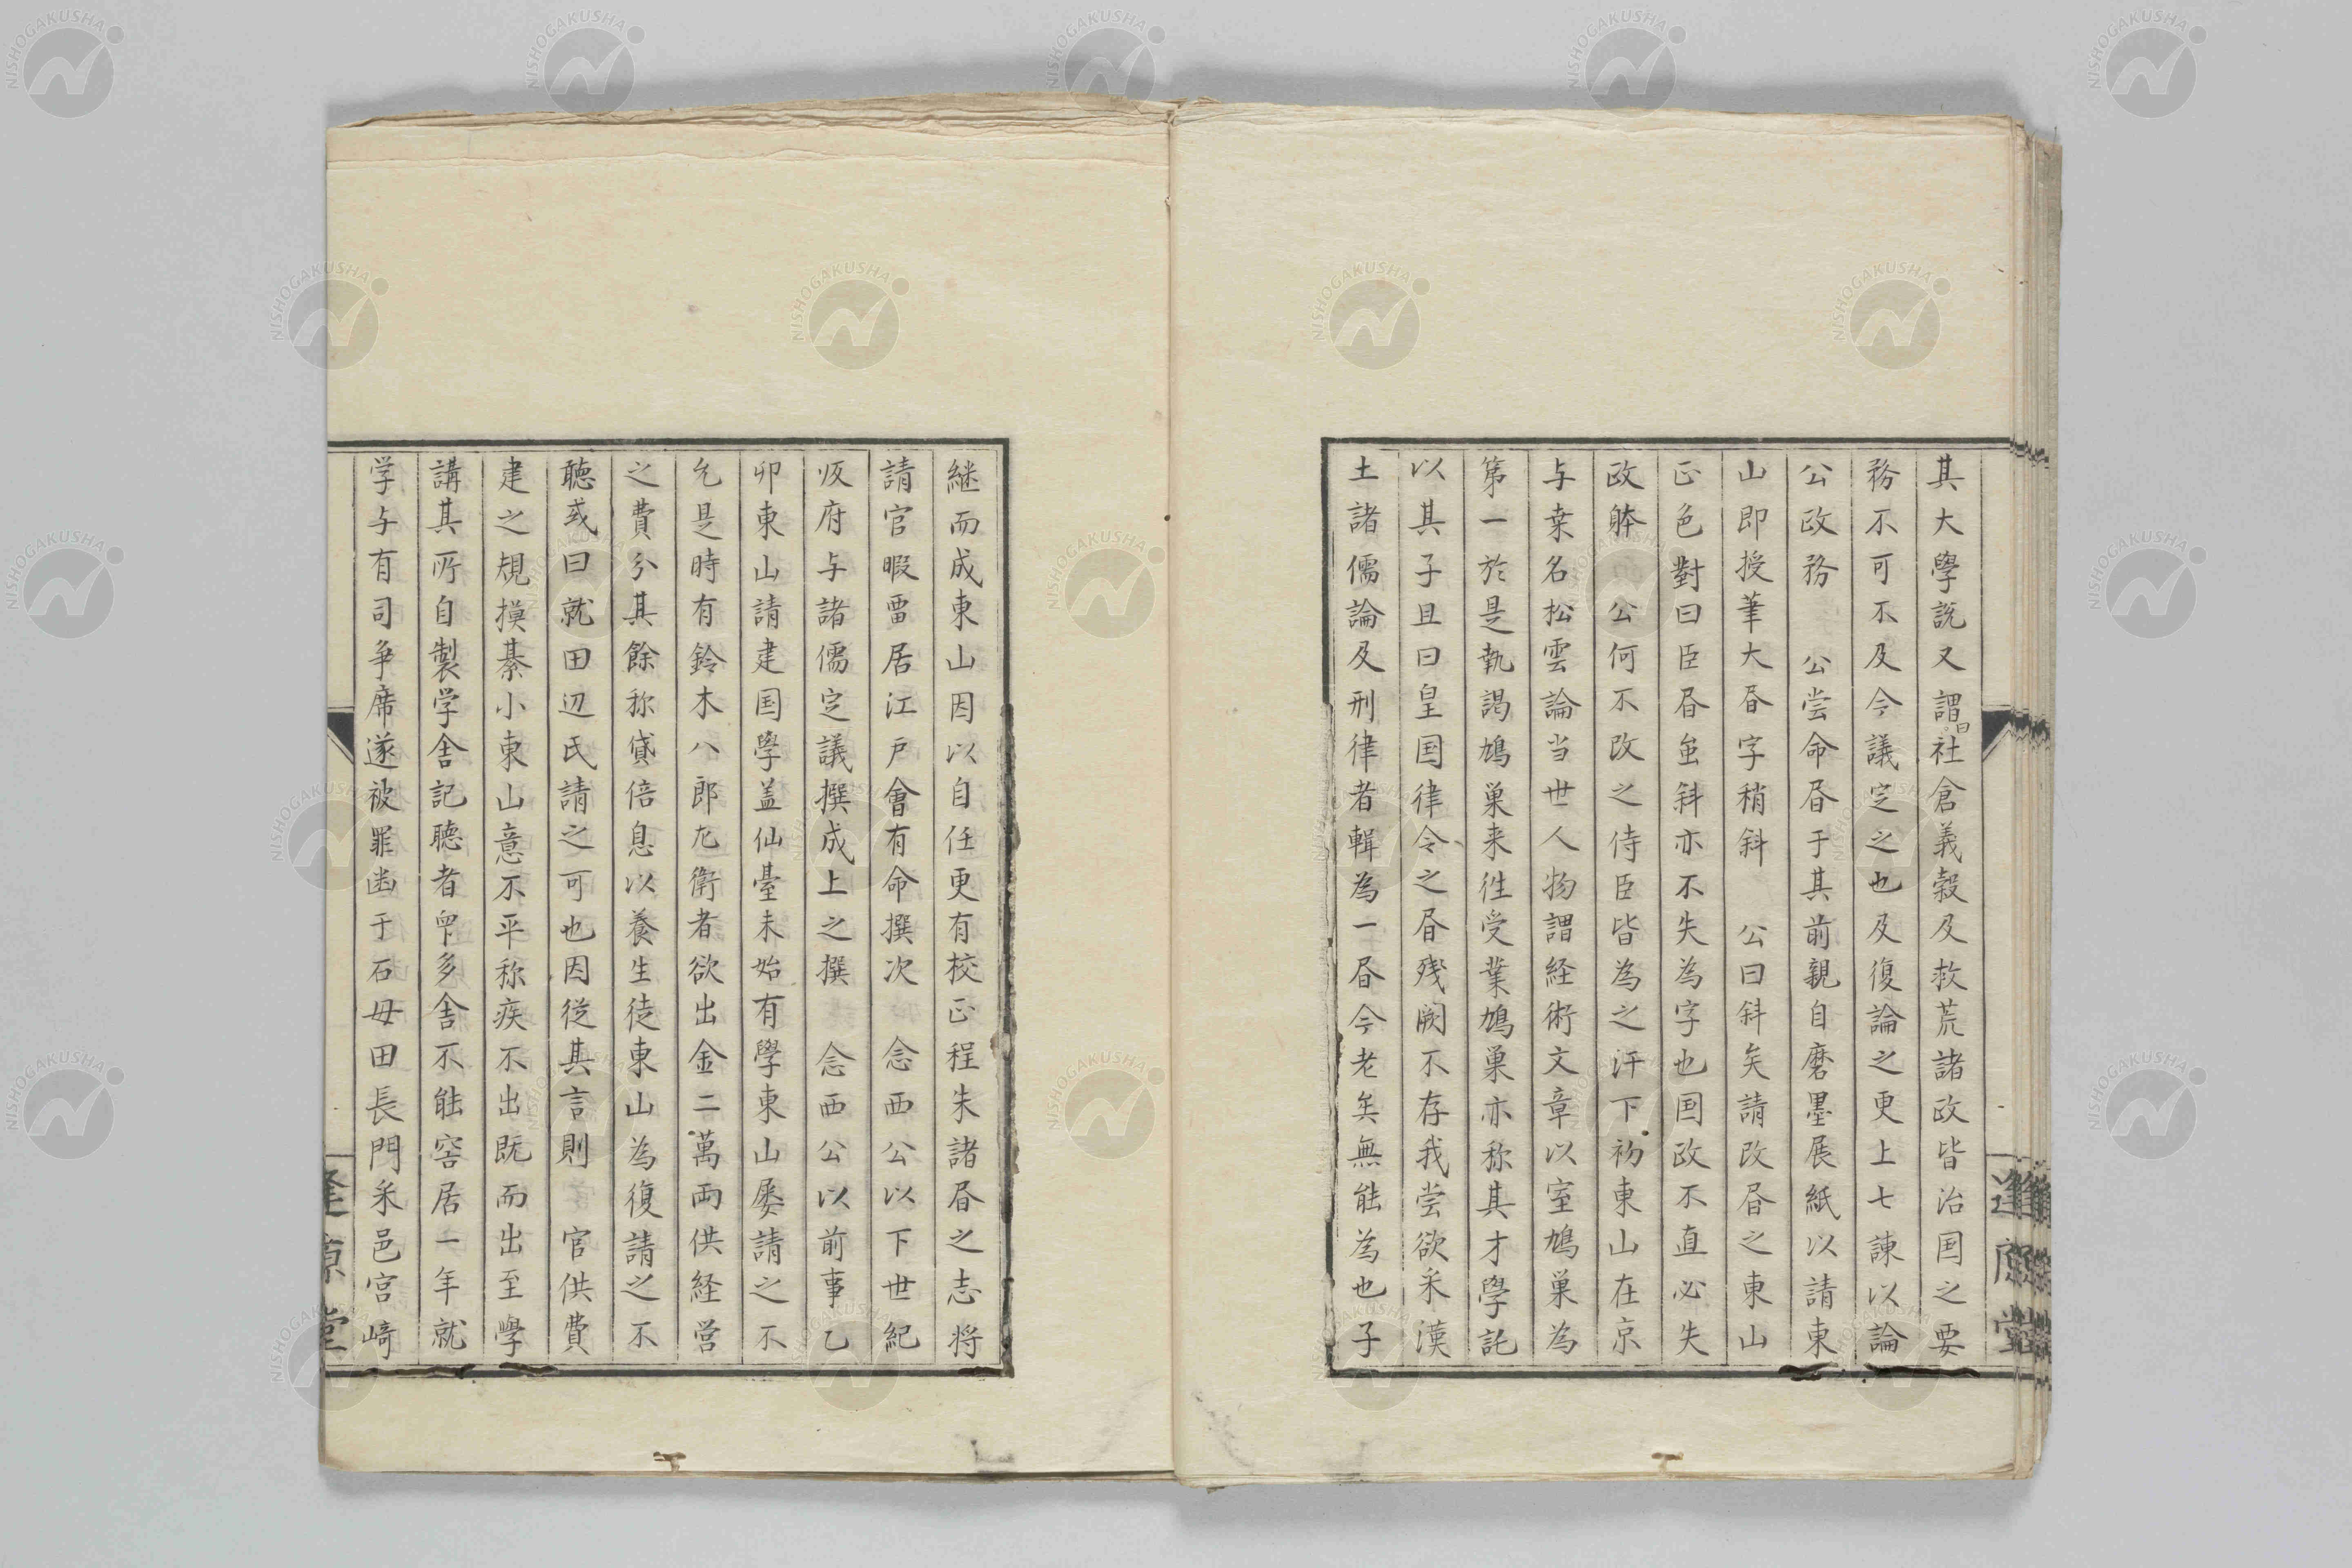 其大學説又謂曰社倉義穀及救荒諸政皆治国之要
務不可不及今議定之也及復論之更上七諌以論
公政務 公嘗命昼于其前親自磨墨展紙以請東
山即授筆大昼字稍斜 公曰斜矣請改昼之東山
正色對曰臣昼虽斜亦不失為字也国政不直必失
政躰 公何不改之侍臣皆為之汗下初東山在京
与桒名松雲論当世人物謂経術文章以室鳩巣為
第一於是執謁鳩巣来徃受業鳩巣亦称其才學託
以其子且曰皇国律令之昼残闕不存我嘗欲采漢
土諸儒論及刑律者輯為一昼今老矣無能為也子
継而成東山因以自任更有校正程朱諸昼之志将
請官暇畱居江戸會有命撰次 念西公以下世紀
仮府与諸儒定議撰成上之撰 念西公以前事乙
卯東山請建国學盖仙臺未始有學東山屡請之不
允是時有鈴木八郎兀衛者欲出金二萬両供経営
之費分其餘称貸倍息以養生徒東山為復請之不
聴或曰就田辺氏請之可也因従其言則 官供費
建之規摸綦小東山意不平称疾不出既而出至學
講其所自製学舎記聴者甲多舎不能容居一年就
学与有司争席遂被罪幽于石母田長門采邑宮崎
逢原堂
逢原堂
NISHOGAKUSHA